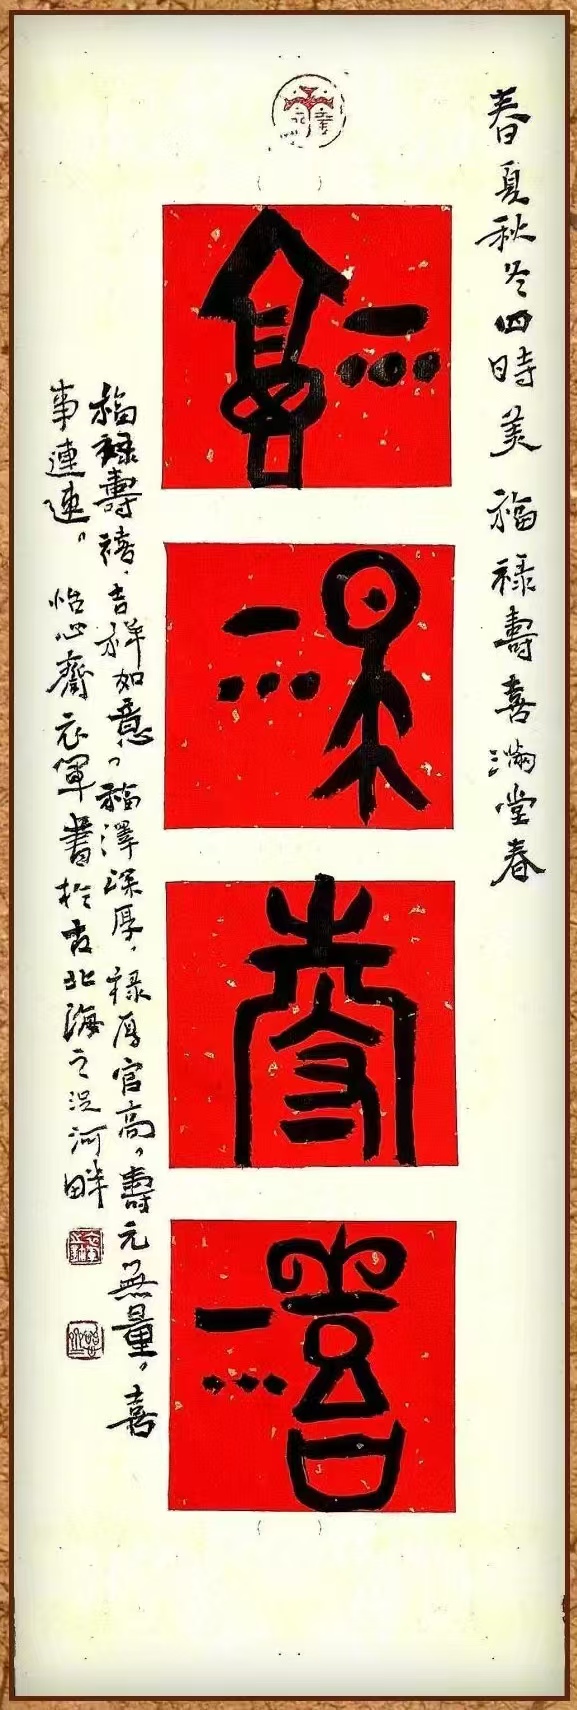 春夏秋冬四時美 福禄壽喜滿堂春
福
禄
壽
禧
福禄壽禧，吉祥如意，福澤深厚，禄厚官高，壽元無量，喜
事連連。 怡心齋 軍書於古北海之 河畔